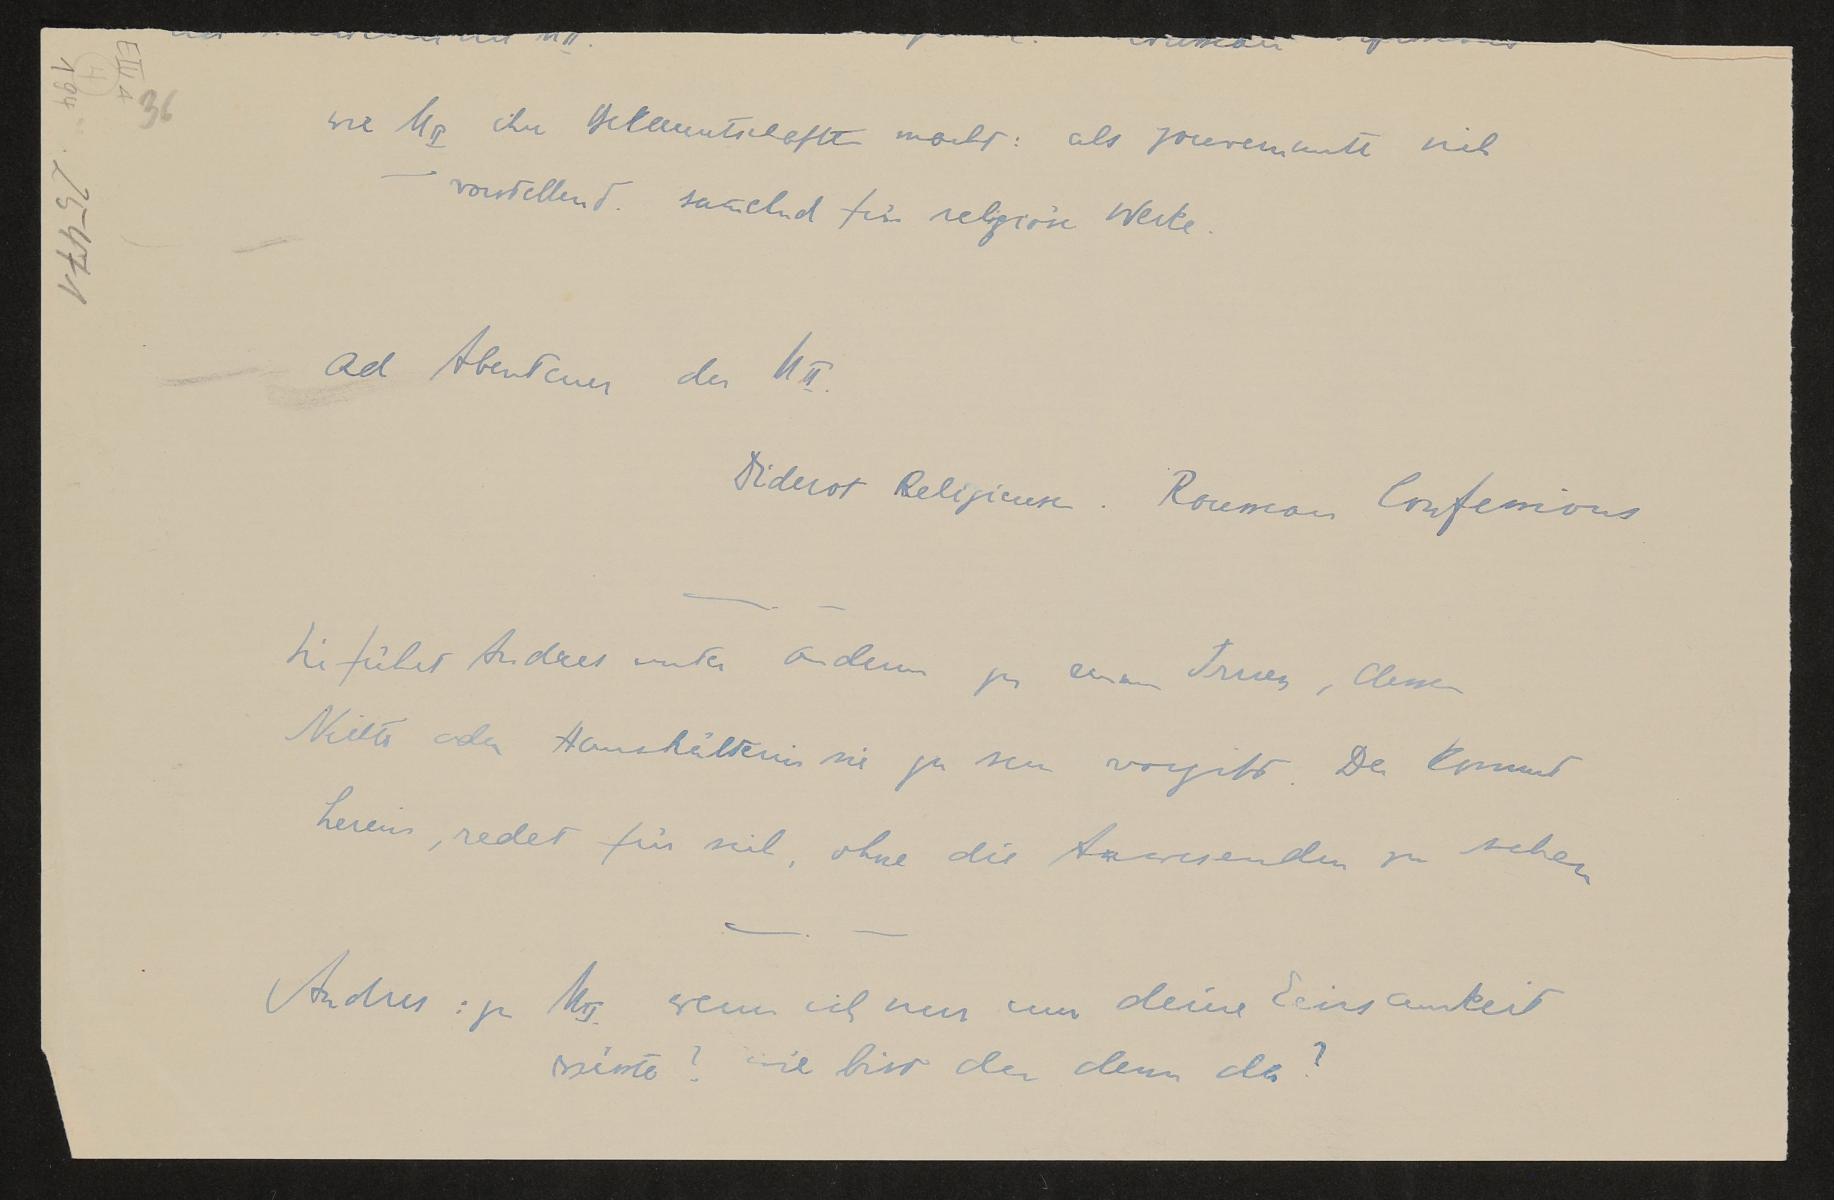 wie M II ihre Bekanntschaften macht: als Gouvernante sich
vorstellend. sammelnd für religiöse Werke.
ad Abenteuer der M II.
Diderot Religieuse. Rousseau Confessions
Sie führt Andres unter anderm zu einem Irren, dessen
Nichte oder Haushälterin sie zu sein vorgibt. Der kommt
herein, redet für sich, ohne die Anwesenden zu sehen
Andres: zu M II. wenn ich nur um deine Einsamkeit
wüsste? wie bist du denn da?
E IV A
4
194
36
25471